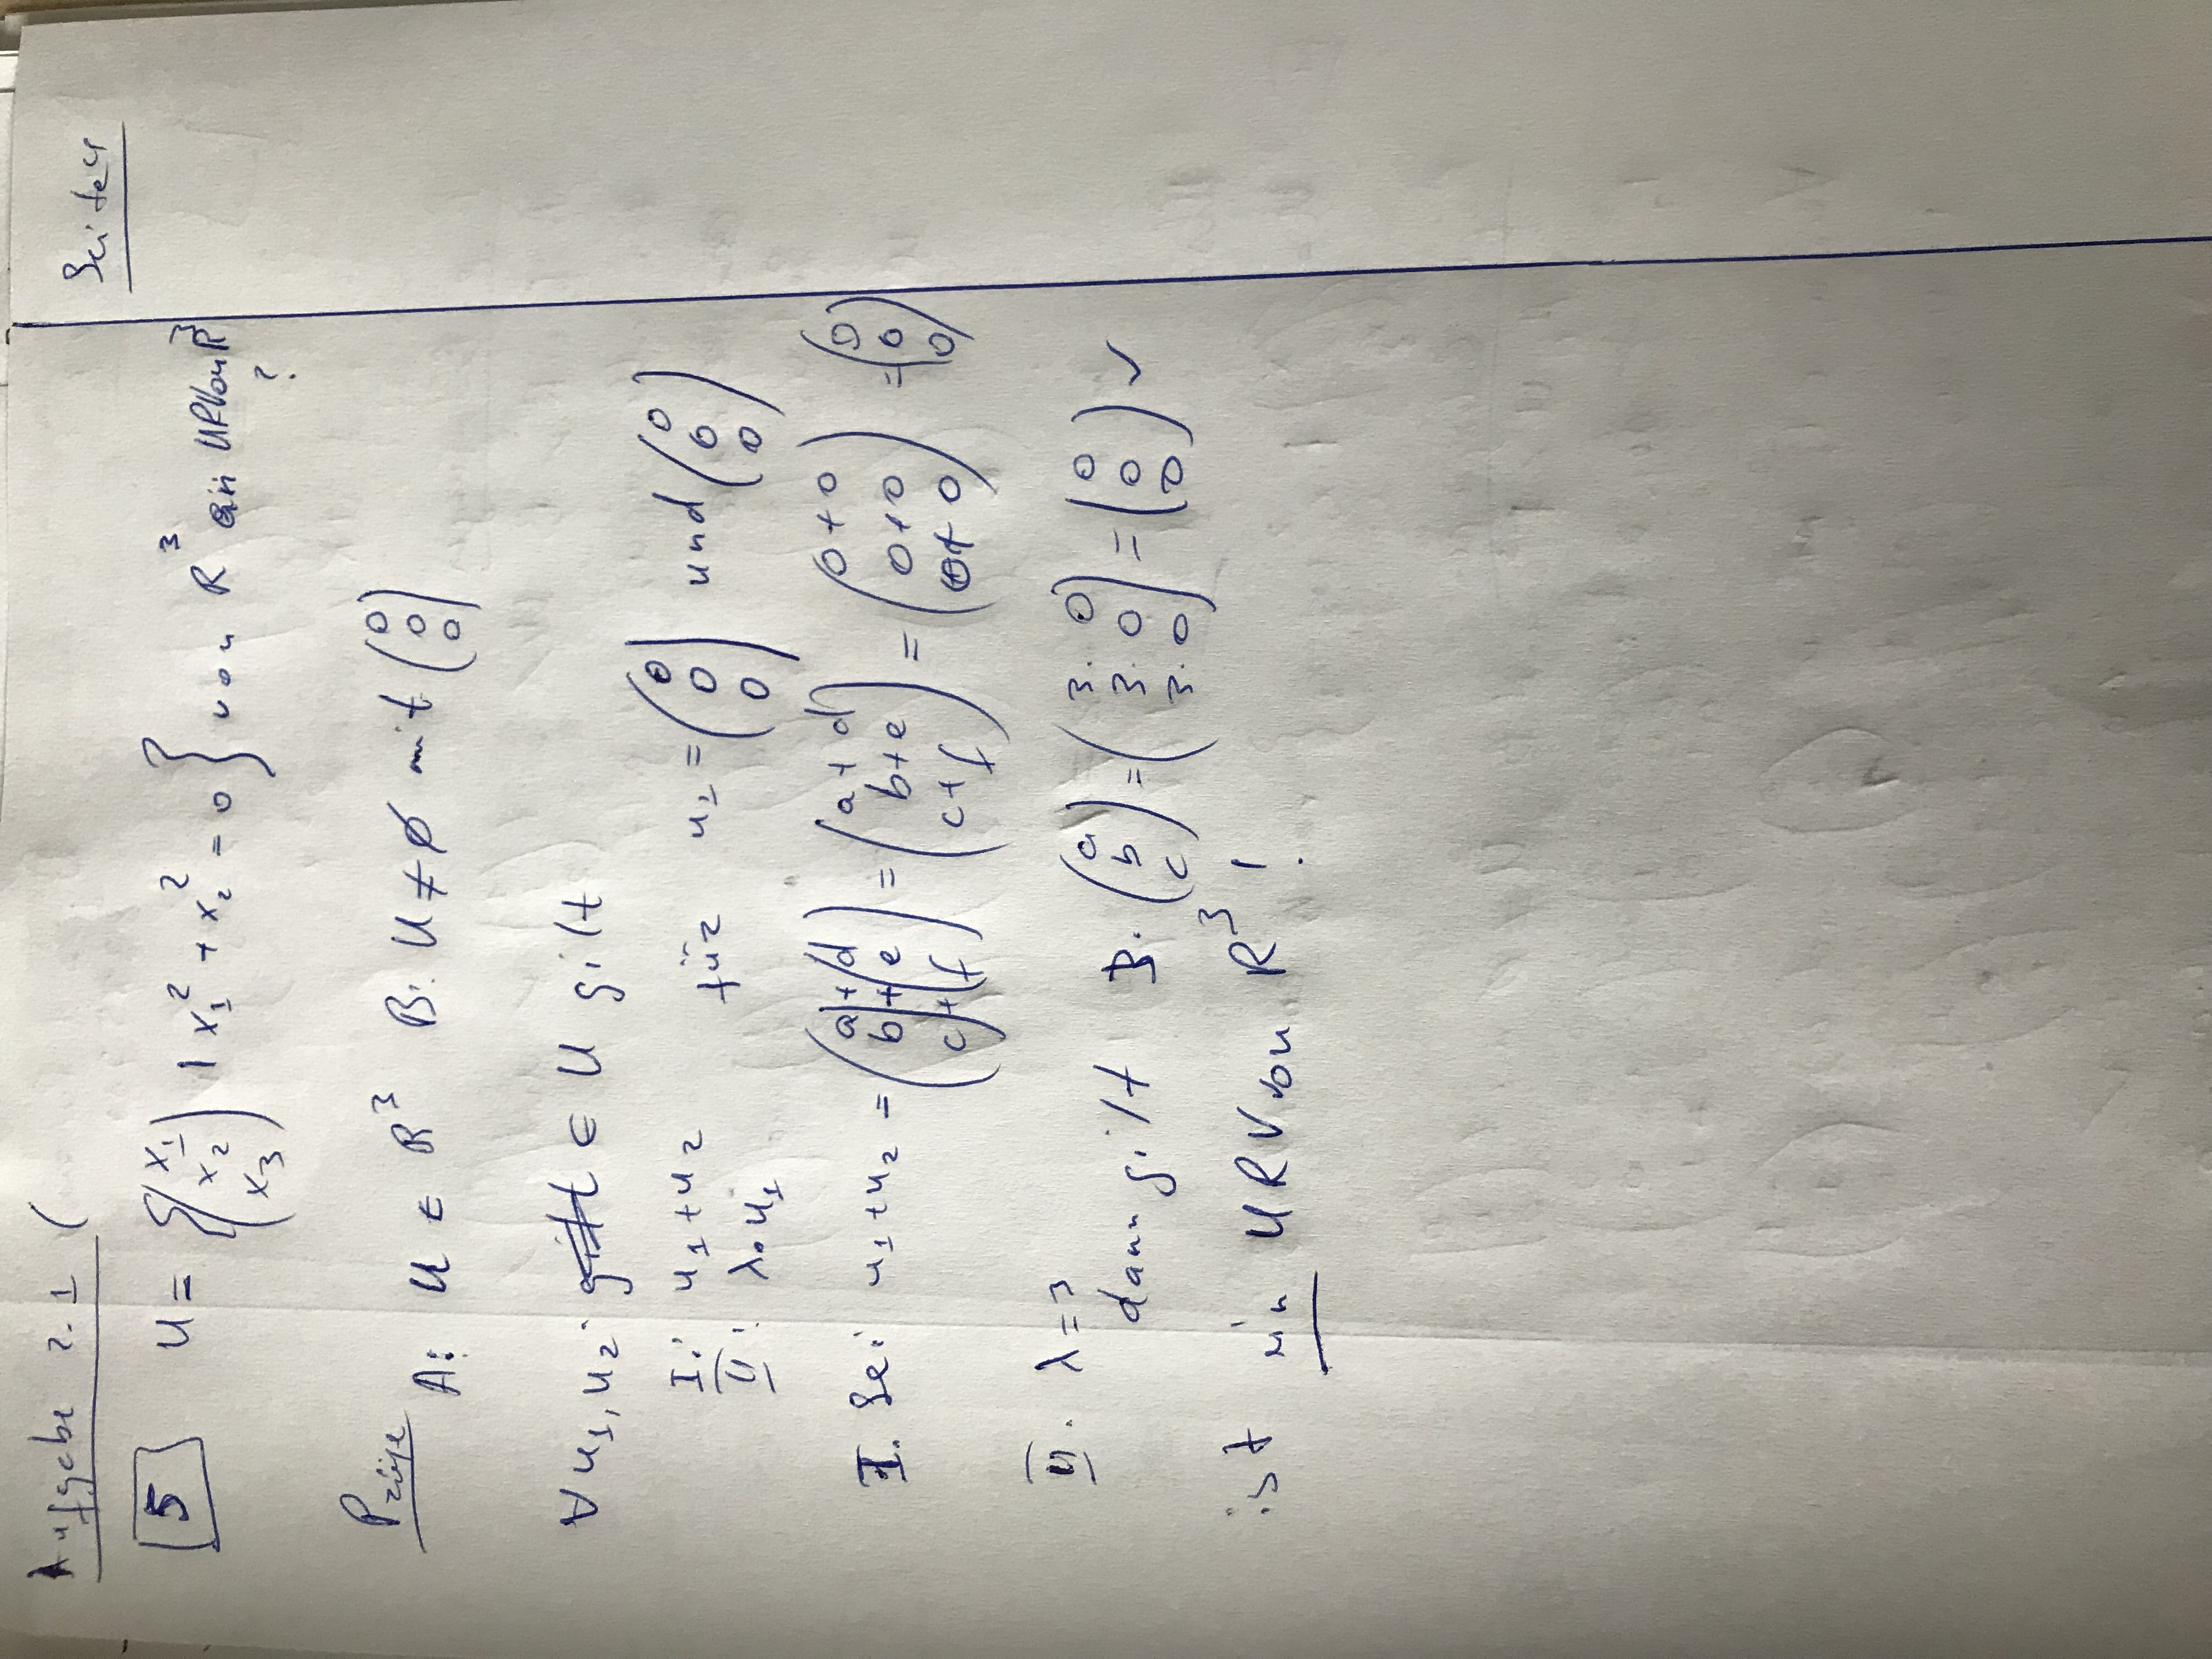 Aufgabe 2.1 (
Seite 4
5 U = {(x₁ x₂ x₃) | x₁² + x₂² = 0} von R³ ein URV von R³
?
Prüfe
A: U ∈ R³ B: U ≠ ∅ mit (0 0 0)
∀ u₁, u₂ ∈ U gilt
I: u₁ + u₂ für u₁ = (0 0 0) und (0 0 0)
II: λ · u₁
I. Sei u₁ + u₂ = (a b c) + (d e f) = (a + d b + e c + f) = (0 + 0 0 + 0 0 + 0) = (0 0 0)
II. λ = 3
dann gilt 3 · (a b c) = (3 · 0 3 · 0 3 · 0) = (0 0 0) ✓
ist ein URV von R³ !